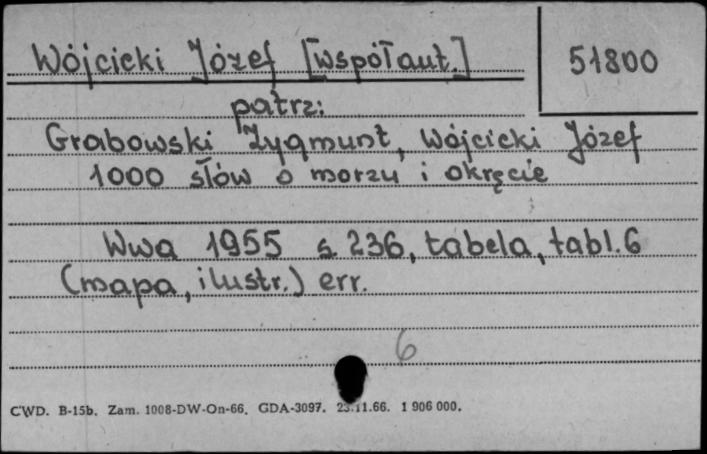 Wójcicki Józef [współaut.]
51800
patrz:
Grabowski Zygmunt, Wójcicki Józef
1000 słów o morzu i okręcie
Wwa 1955 s. 236, tabela, tabl. 6
(mapa, ilustr.) err.
6
CWD. B-15b. Zam. 1008-DW-On-66. GDA-3097. 23.11.66. 1 906 000.